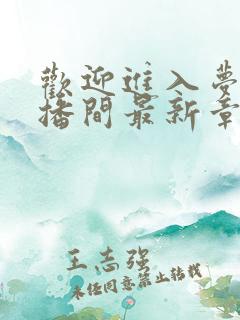 歡迎進入夢
播間最新章
王志强
未经同意禁止转载